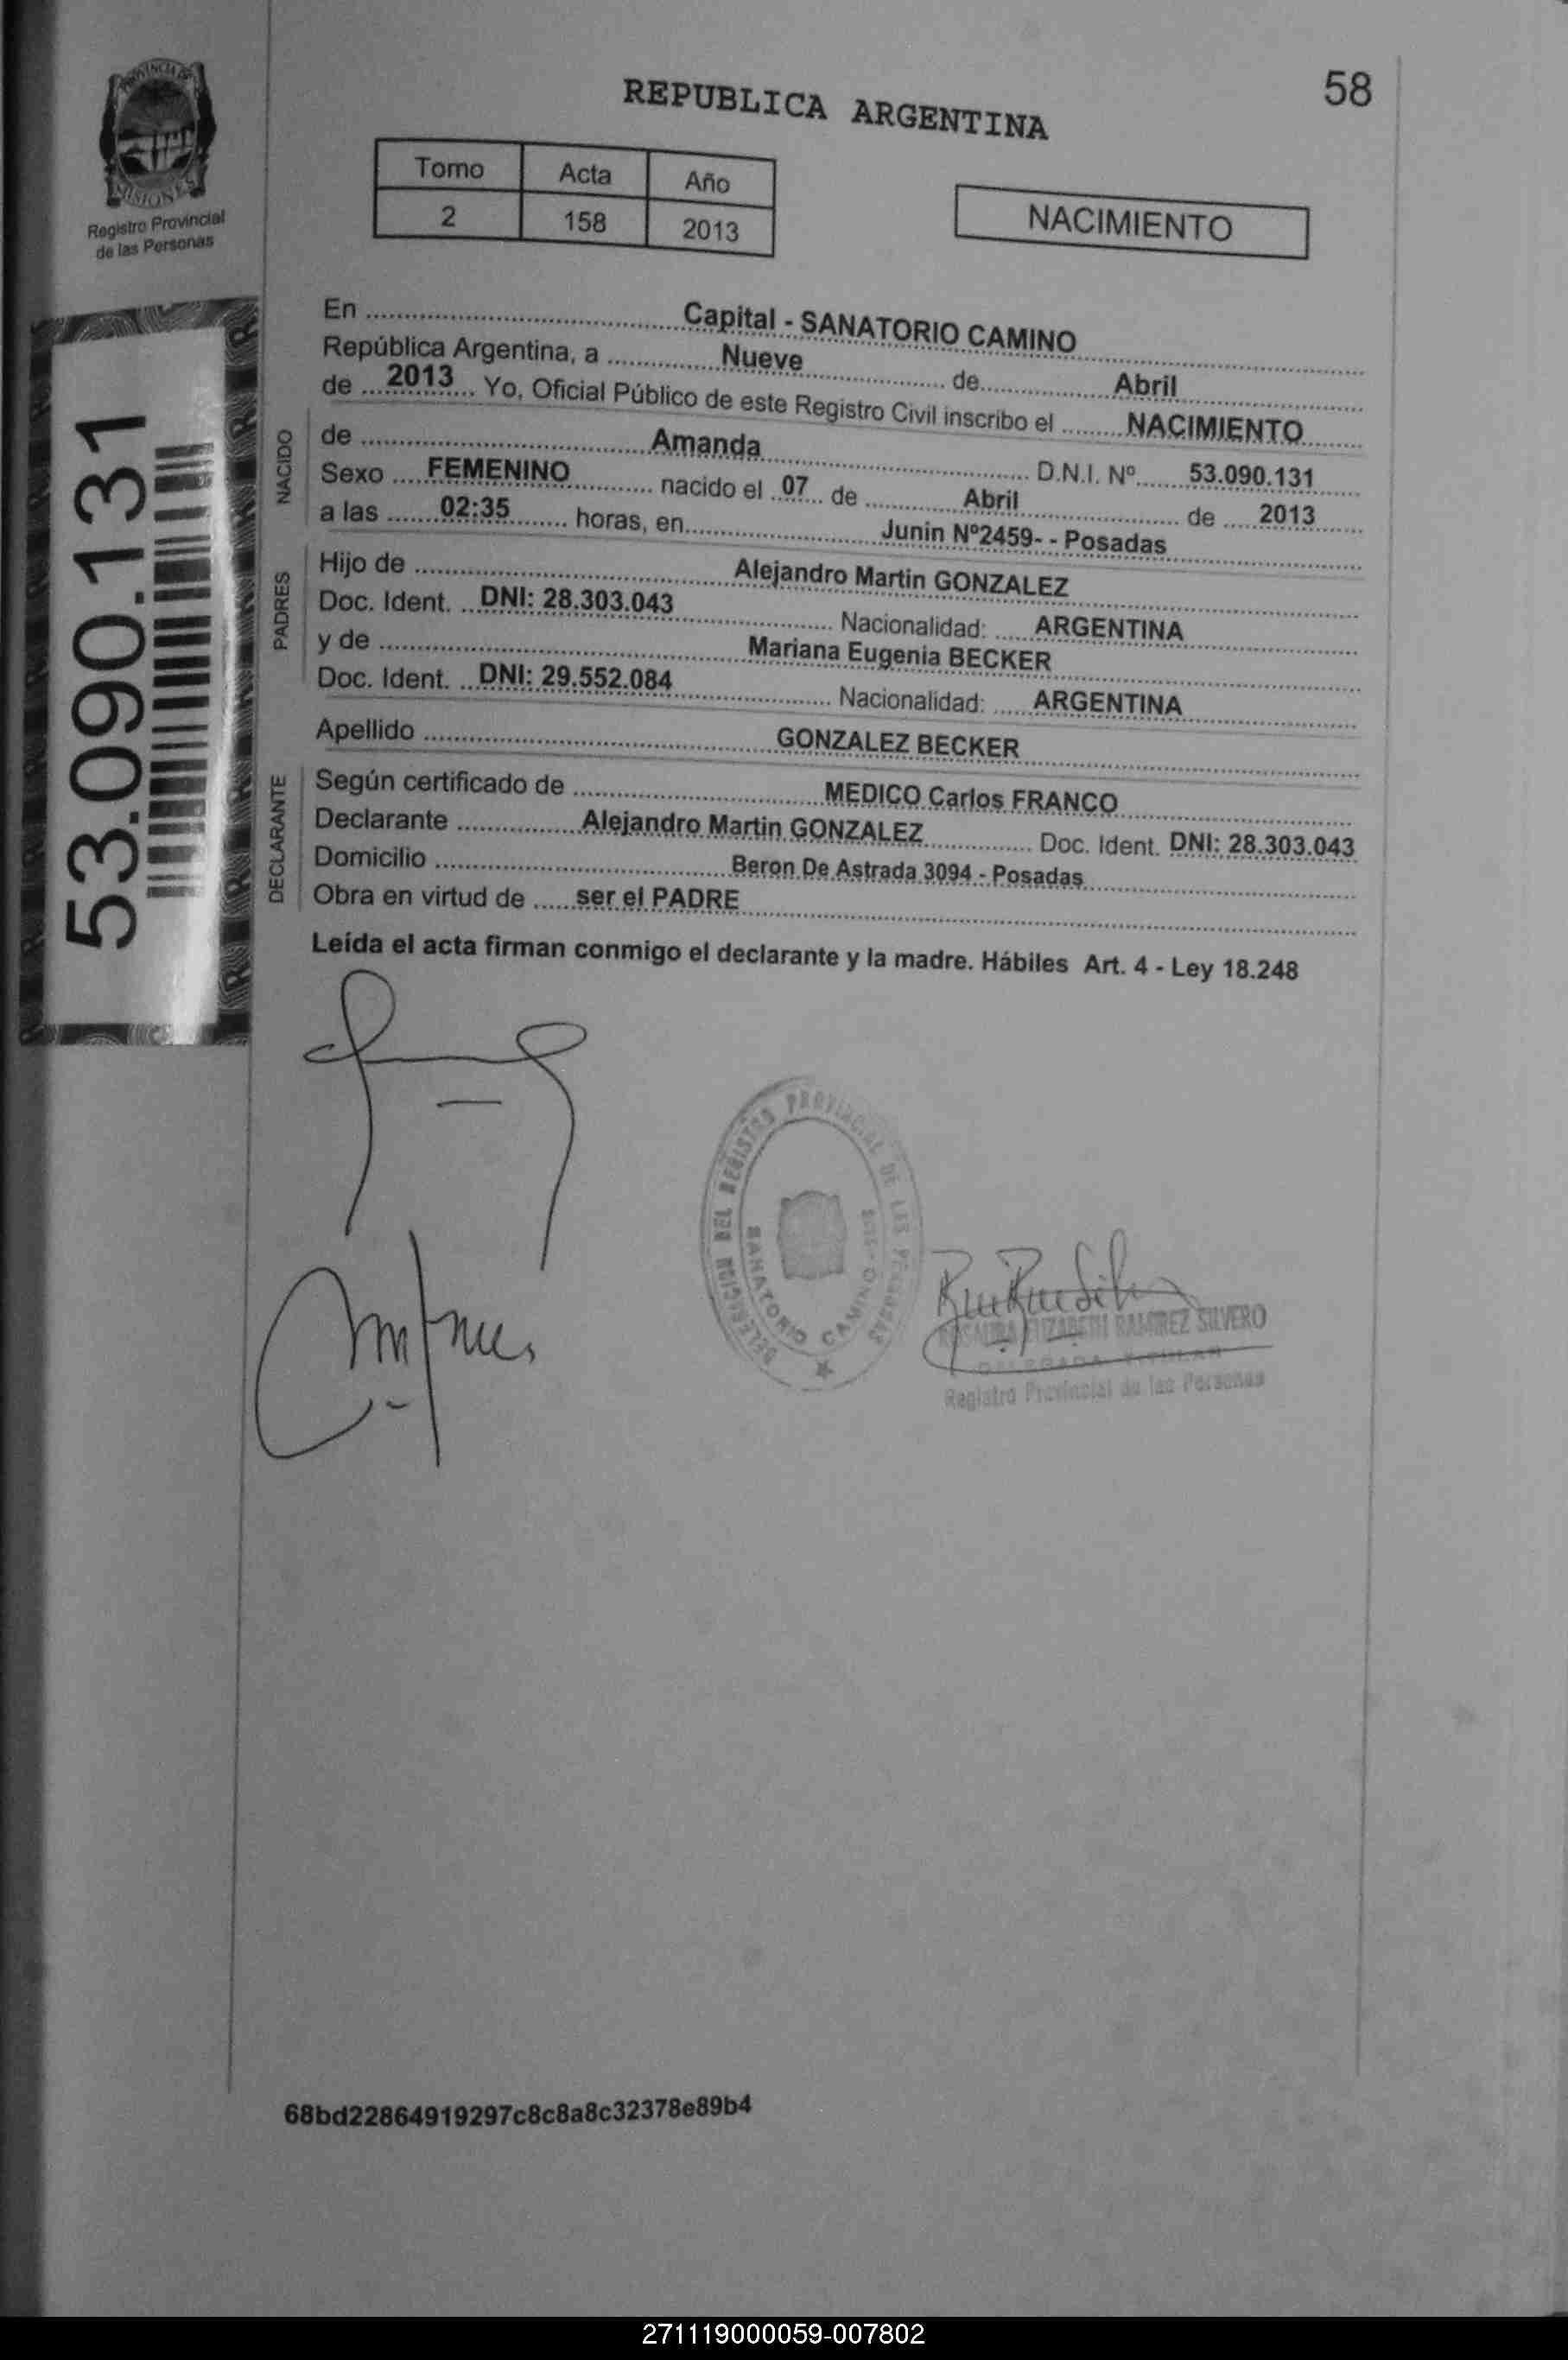 58
REPUBLICA ARGENTINA
PROVINCIA DE
MISIONES
Registro Provincial
de las Personas
Tomo Acta Año
2 158 2013
NACIMIENTO
53.090.131
En ........ Capital - SANATORIO CAMINO
República Argentina, a ........ Nueve ........ de ........ Abril
de ... 2013 ... Yo, Oficial Público de este Registro Civil inscribo el ........ NACIMIENTO
NACIDO
de ........ Amanda ........ D.N.I. Nº ........ 53.090.131
Sexo .... FEMENINO ........ nacido el .. 07 .. de ........ Abril ........ de .... 2013
a las ...... 02:35 ...... horas, en ........ Junin Nº2459- - Posadas
PADRES
Hijo de ........ Alejandro Martin GONZALEZ
Doc. Ident. .. DNI: 28.303.043 ........ Nacionalidad: ..... ARGENTINA
y de ........ Mariana Eugenia BECKER
Doc. Ident. .. DNI: 29.552.084 ........ Nacionalidad: ..... ARGENTINA
Apellido ........ GONZALEZ BECKER
DECLARANTE
Según certificado de ........ MEDICO Carlos FRANCO
Declarante ........ Alejandro Martin GONZALEZ ........ Doc. Ident. DNI: 28.303.043
Domicilio ........ Beron De Astrada 3094 - Posadas
Obra en virtud de ...... ser el PADRE
Leída el acta firman conmigo el declarante y la madre. Hábiles Art. 4 - Ley 18.248
DELEGACION DEL REGISTRO PROVINCIAL DE LAS PERSONAS
SANATORIO CAMINO
RAMIREZ SILVERO
DELEGADA TITULAR
Registro Provincial de las Personas
68bd22864919297c8c8a8c32378e89b4
271119000059-007802